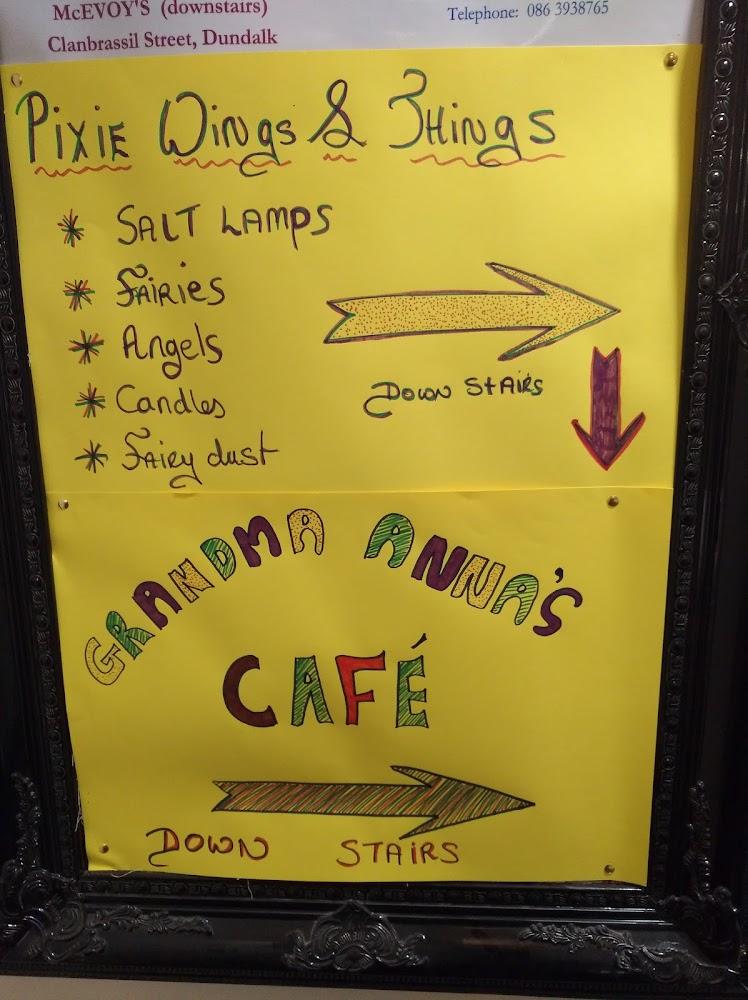 McEVOY'S (downstairs)
Clanbrassil Street, Dundalk
Telephone: 086 3938765
Pixie Wings & Things
* SALT LAMPS
* Fairies
* Angels
* Candles
* Fairy dust
Down Stairs
GRANDMA ANNA'S
CAFÉ
DOWN STAIRS